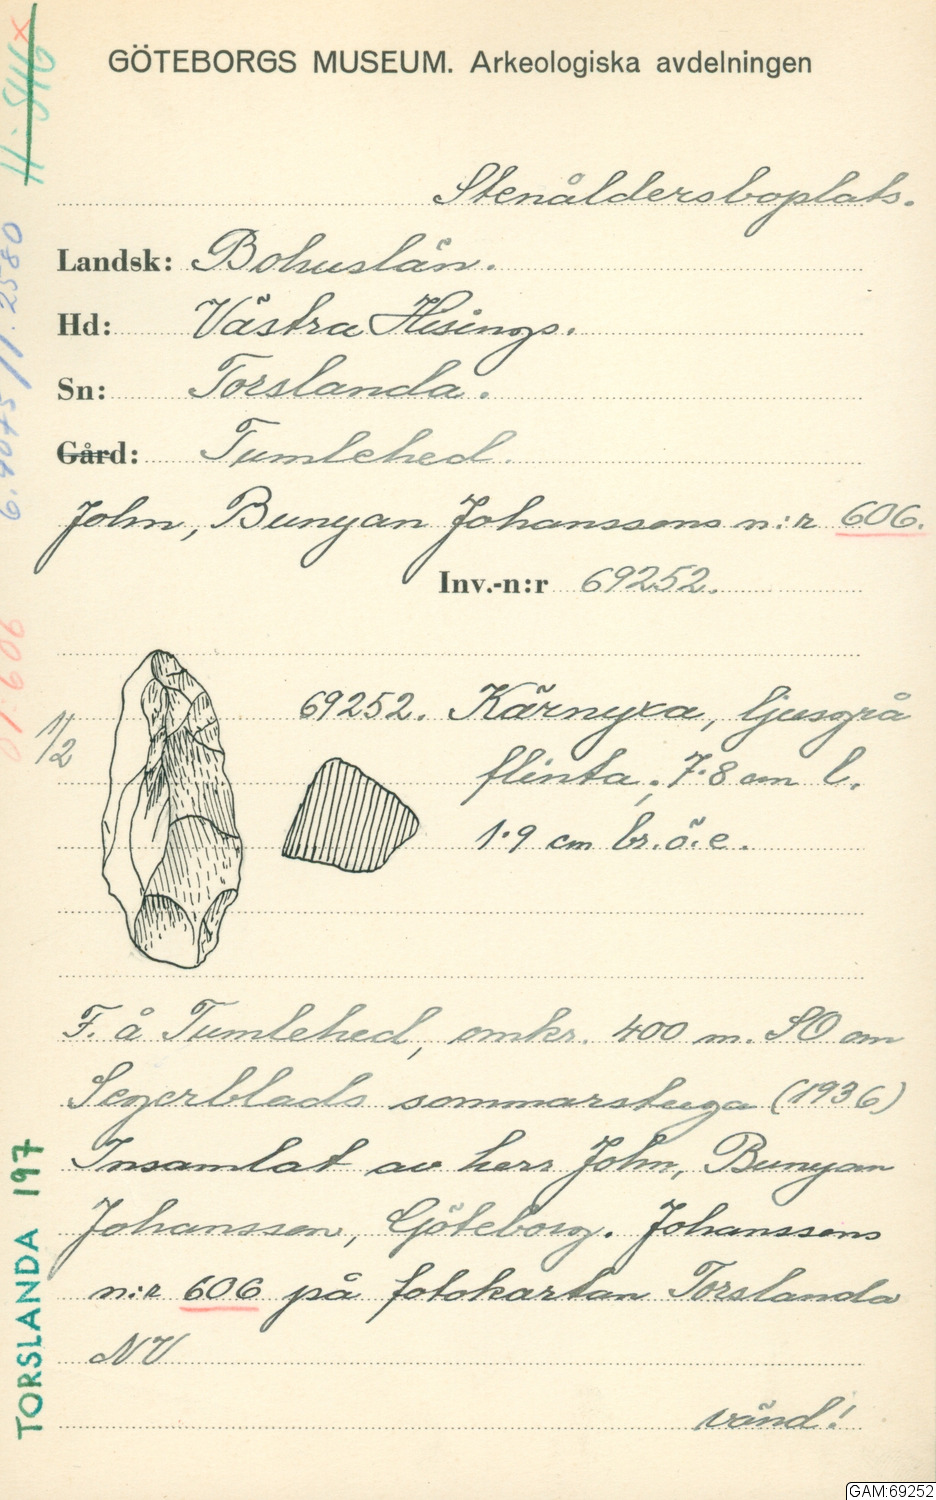 GÖTEBORGS MUSEUM. Arkeologiska avdelningen
Stenåldersboplats.
Landsk: Bohuslän.
Hd: Västra Hisings.
Sn: Torslanda.
Gård: Tumlehed.
John, Bunyan Johanssons n:r 606.
Inv.-n:r 69252.
69252. Kärnyxa, ljusgrå
1/2
flinta, 7.8 cm l.
1.9 cm br. ö. e.
F. å Tumlehed, omkr. 400 m. SO om
Segerblads sommarstuga (1936)
Insamlat av herr John, Bunyan
Johansson, Göteborg. Johanssons
n:r 606 på fotokartan Torslanda
NV
vänd!
TORSLANDA 197
GAM:69252